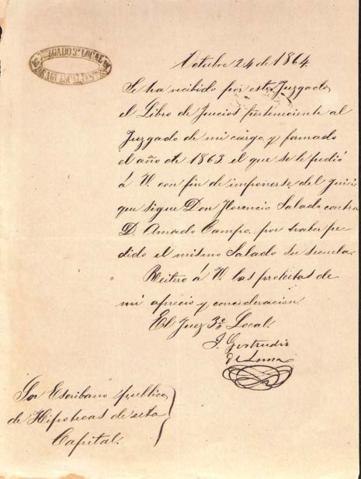 JUZGADO 3º LOCAL
Octubre 24 de 1864
Se ha recibido por este Juzgado
el Libro de Juicios perteneciente al
Juzgado de mi cargo y formado
el año de 1863 el que se le pidió
á V. con fin de imponerse del juicio
que sigue Don Florencio Salado contra
D. Amado Campo, por haber pe-
dido el mismo Salado su
Reitero á V. las protestas de
mi aprecio y consideracion
El Juez 3º Local
J. Gertrudis
de Luna
Sor Escribano publico
de Hipotecas de esta
Capital.